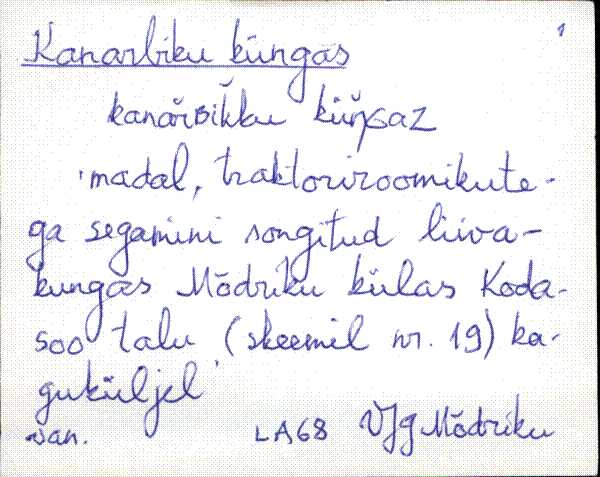 1
Kanarbiku küngas
kanařʙiǩku küŋ̆ɢaz
'madal, traktoriroomikute-
ga segamini songitud liiva-
kungas Mõdriku külas Koda-
soo talu (skeemil nr. 19) ka-
guküljel'
van. LA68 VJg Mõdriku